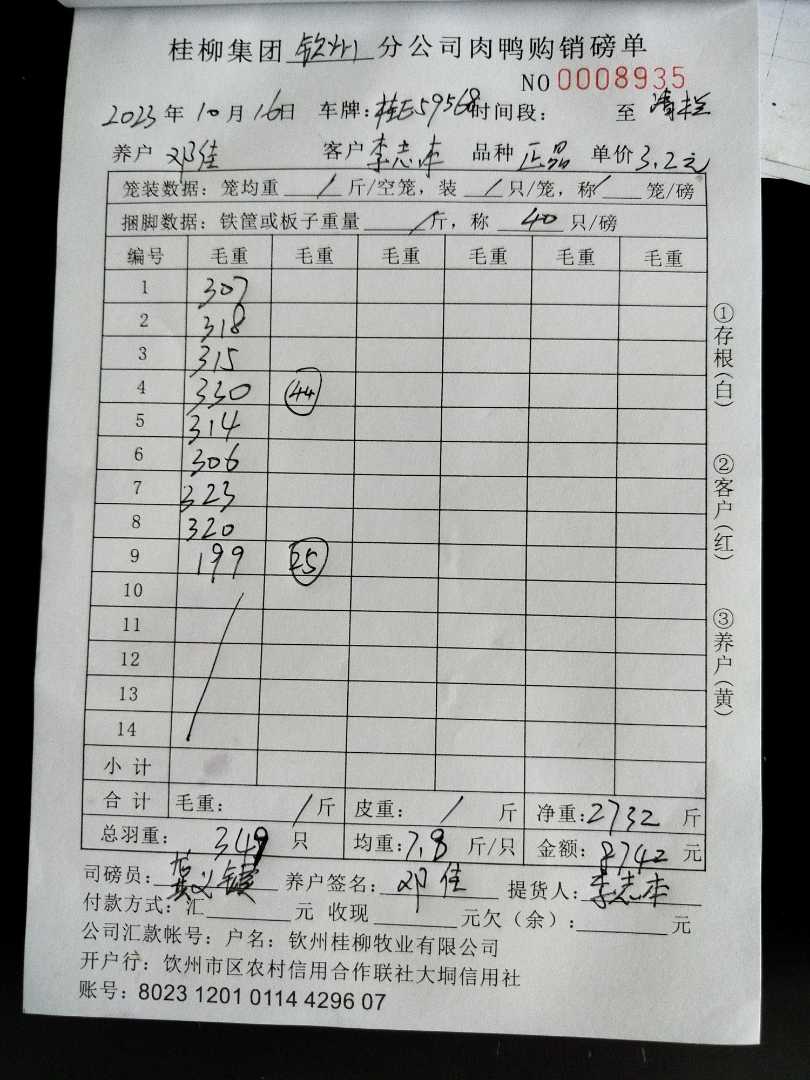 桂柳集团 钦州 分公司肉鸭购销磅单
NO 0008935
2023 年 10 月 16 日 车牌：桂E59568 时间段： 至 清栏
养户 邓佳 客户 李志本 品种 正品 单价 3.2元
笼装数据：笼均重 / 斤/空笼，装 / 只/笼，称 / 笼/磅
捆脚数据：铁筐或板子重量 / 斤，称 40 只/磅
编号 毛重 毛重 毛重 毛重 毛重 毛重
1 307
2 318
3 315
4 330 44
5 314
6 306
7 323
8 320
9 199 25
10
11
12
13
14
小计
合计 毛重： / 斤 皮重： / 斤 净重：2732 斤
总羽重： 349 只 均重：7.8 斤/只 金额：8742 元
司磅员： 养户签名： 邓佳 提货人：李志本
付款方式：汇 元 收现 元欠（余）： 元
公司汇款帐号：户名：钦州桂柳牧业有限公司
开户行：钦州市区农村信用合作联社大垌信用社
账号：8023 1201 0114 4296 07
①存根（白）
②客户（红）
③养户（黄）